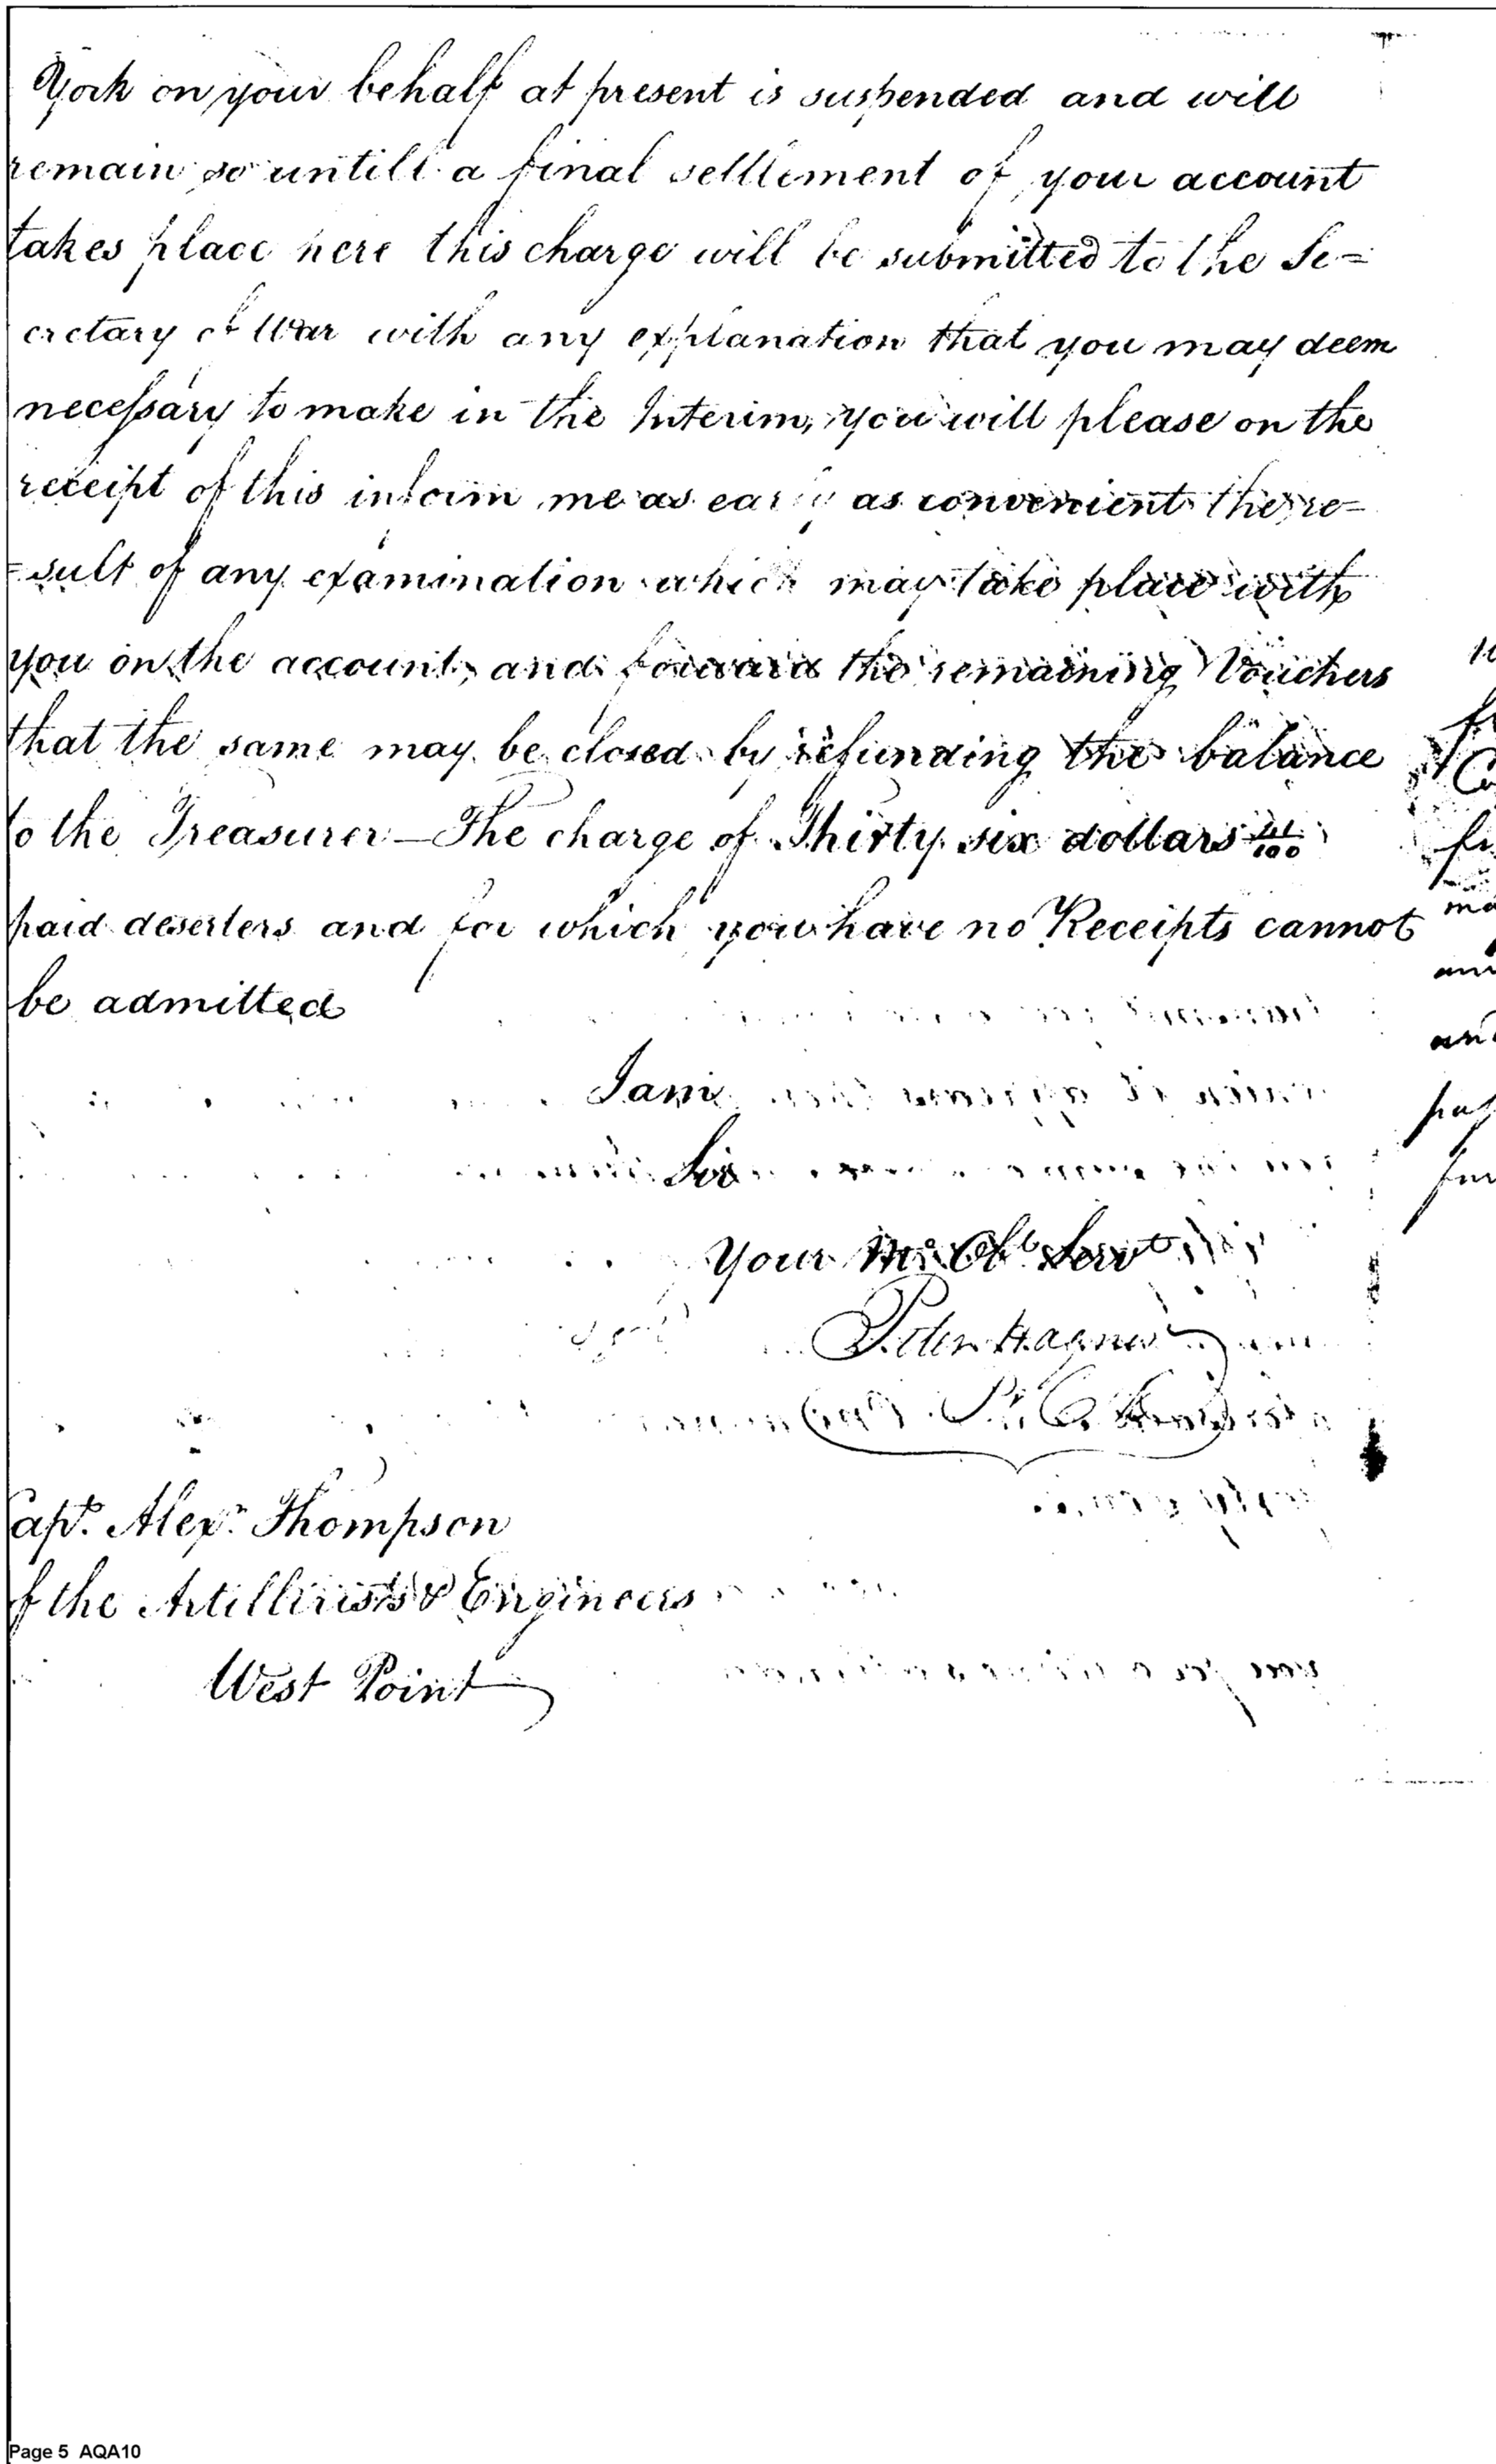 York on your behalf at present is suspended and will
remain so untill a final settlement of your account
takes place here this charge will be submitted to the Se=
cretary of War with any explanation that you may deem
necessary to make in the Interim, you will please on the
receipt of this inform me as early as convenient the re=
=sult of any examination which may take place with
you on the account, and forward the remaining Vouchers
that the same may be closed by refunding the balance
to the Treasurer—The charge of Thirty six dollars
paid deserters and for which you have no Receipts cannot
be admitted
I am
Sir
Your Mo. Ob. Servt.
Peter Hagner
Capt. Alexr. Thompson
of the Artillirists & Engineers
West Point
Page 5 AQA10